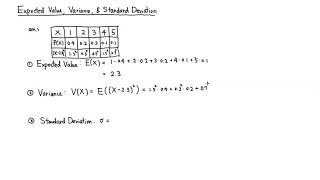 Expected Value, Variance, & Standard Deviation
X 1 2 3 4 5
P(X) 0.4 0.2 0.2 0.1 0.1
① Expected Value : E(X) = 1·0.4 + 2·0.2 + 3·0.2 + 4·0.1 + 5·0.1
= 2.3
② Variance : V(X) = E((X-2.3)²) = 1.3²·0.4 + 0.3²·0.2 + 0.7²
③ Standard Deviation : σ =